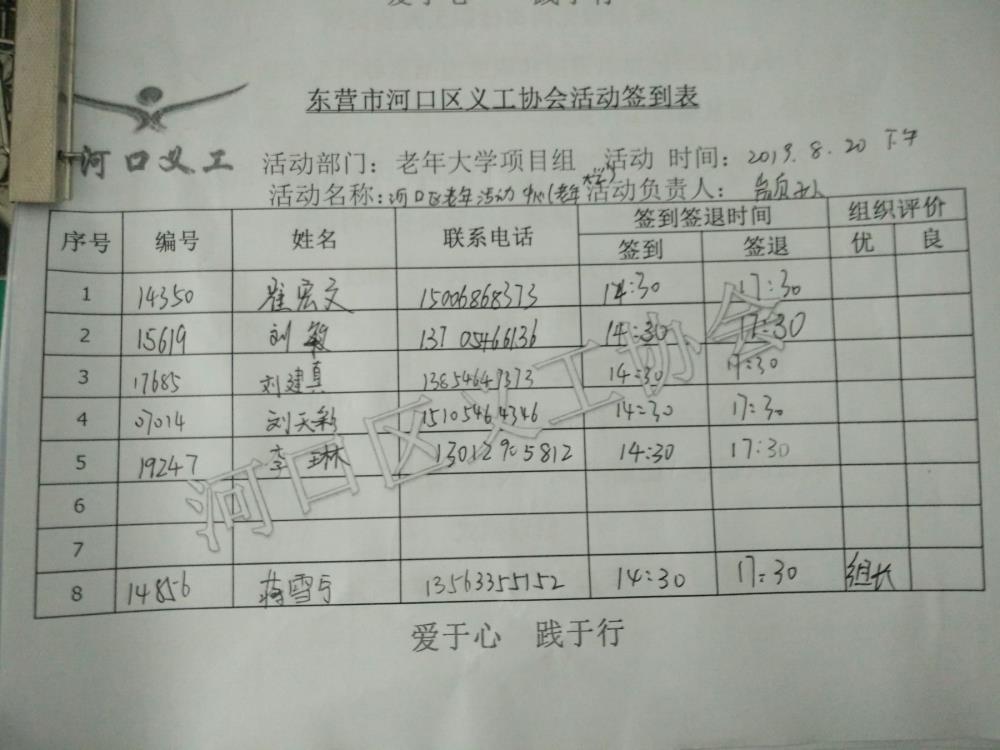 爱于心 践于行
东营市河口区义工协会活动签到表
河口义工
活动部门：老年大学项目组 活动 时间：2019.8.20 下午
活动名称：河口区老年活动中心(老年大学) 活动负责人：
序号 编号 姓名 联系电话 签到签退时间 组织评价
签到 签退 优 良
1 14350 崔宏文 15006868373 14:30 17:30
2 15619 刘敏 13705466136 14:30 17:30
3 17685 刘建真 14:30 17:30
4 07014 刘天彩 15105464346 14:30 17:30
5 19247 李玉琳 14:30 17:30
6
7
8 14856 蒋雪亏 13563355152 14:30 17:30 组长
河口区义工协会
爱于心 践于行